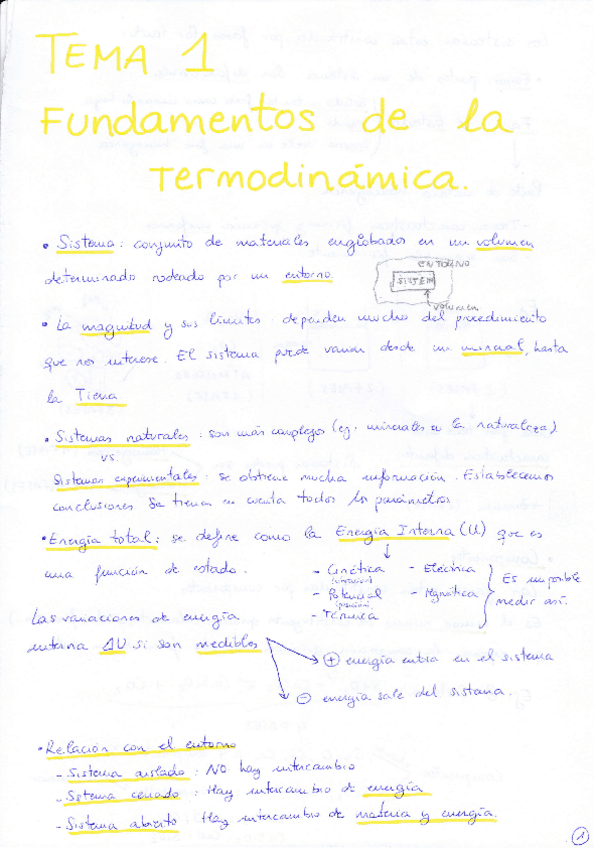 TEMA 1
Fundamentos de la
Termodinámica.
• Sistema: conjunto de materiales englobados en un volumen
determinado rodeado por un entorno.
ENTORNO
SISTEMA
volumen
• La magnitud y sus límites dependen mucho del procedimiento
que nos interese. El sistema puede variar desde un mineral, hasta
la Tierra
• Sistemas naturales: son más complejos (eg. minerales en la naturaleza)
vs.
Sistemas experimentales: se obtiene mucha información. Establecemos
conclusiones. Se tienen en cuenta todos los parámetros
• Energía total: se define como la Energía Interna (U) que es
una función de estado.
- Cinética
(vibración)
- Potencial
(posición)
- Térmica
- Eléctrica
- Magnética
Es imposible
medir así.
Las variaciones de energía
interna ΔU si son medibles
+ energía entra en el sistema
- energía sale del sistema.
• Relación con el entorno
- Sistema aislado: NO hay intercambio
- Sistema cerrado: Hay intercambio de energía
- Sistema abierto: Hay intercambio de materia y energía.
1